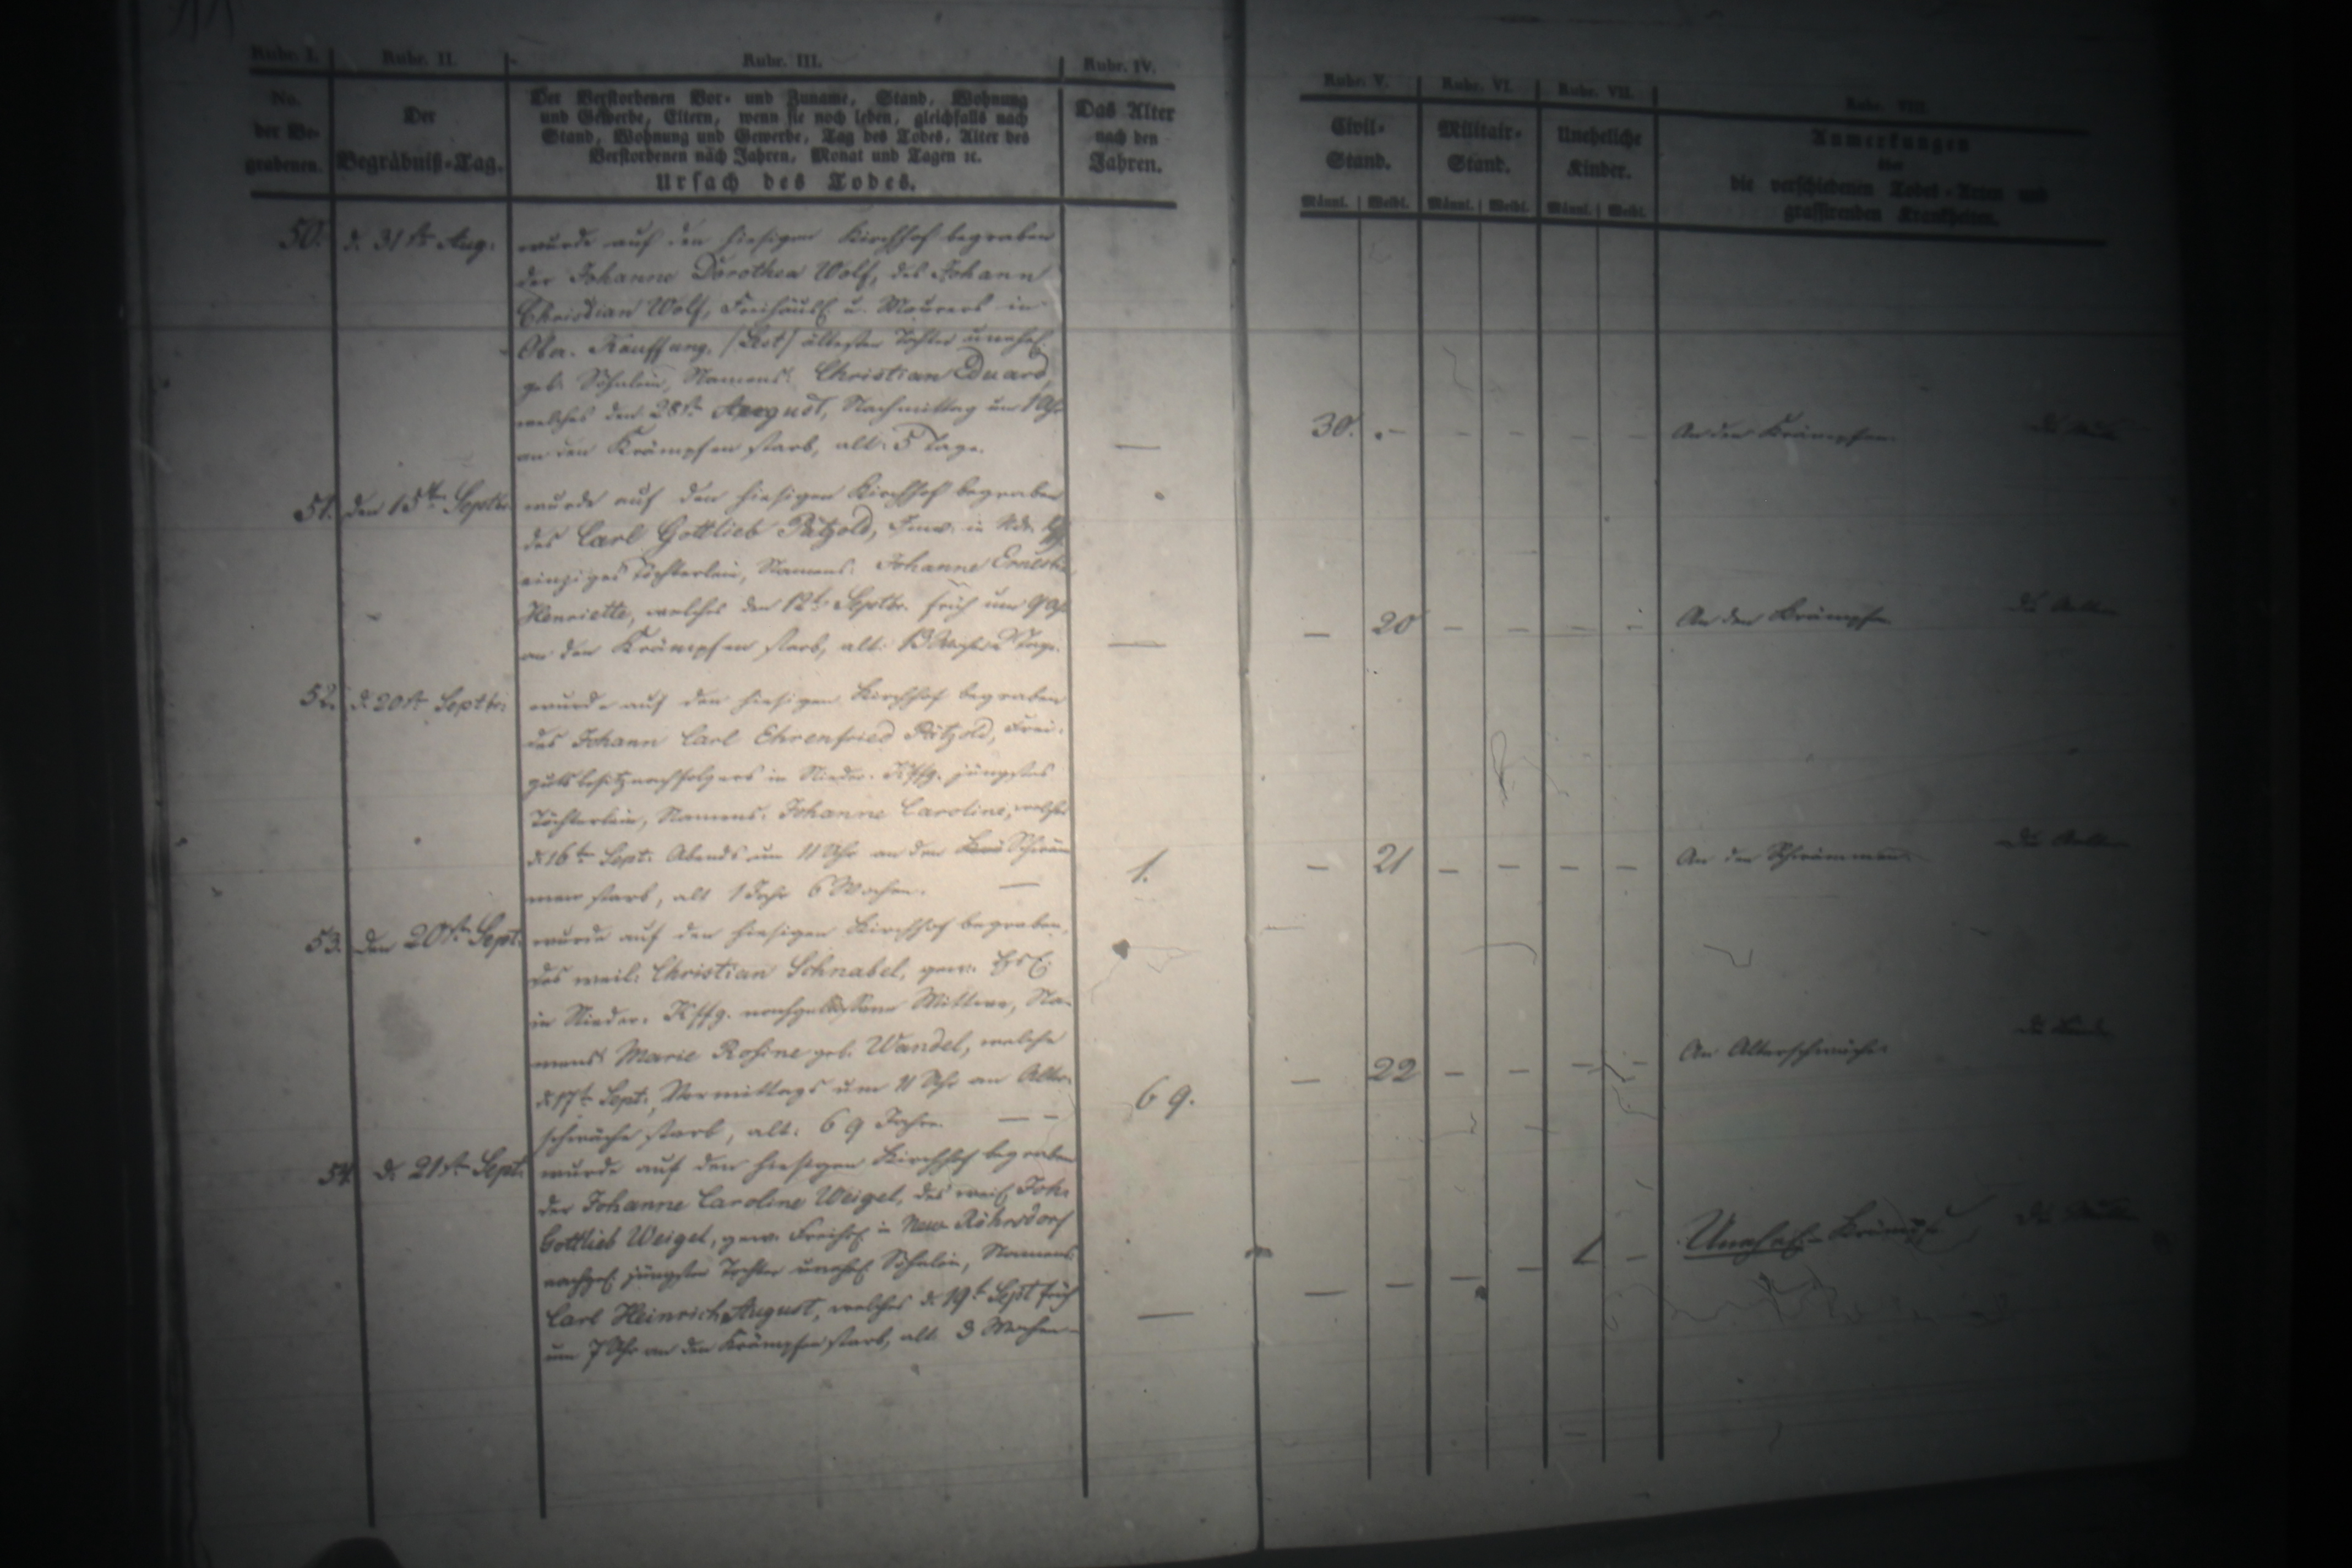 Rubr. I. Rubr. II. Rubr. III. Rubr. IV. Rubr. V. Rubr. VI. Rubr. VII. Rubr. VIII.
No. der Be- grabenen.
Der Begräbniß-Tag.
Der Verstorbenen Vor- und Zuname, Stand, Wohnung
und Gewerbe, Eltern, wenn sie noch leben, gleichfalls nach
Stand, Wohnung und Gewerbe, Tag des Todes, Alter des
Verstorbenen nach Jahren, Monat und Tagen ꝛc.
Ursach des Todes.
Das Alter
nach den
Jahren.
Civil-
Stand.
Männl. Weibl.
Militair-
Stand.
Männl. Weibl.
Uneheliche
Kinder.
Männl. Weibl.
Anmerkungen
über
die verschiedenen Todes-Arten und
grassirenden Krankheiten.
50. d. 31st. Aug. wurde auf den hiesigen Kirchhof begraben
der Johanne Dorothea Wolf, des Johann
Christian Wolf, Freihäusl. u. Maurers in
Ober-Kauffung, ältester Tochter unehel.
geb. Söhnlein, Namens: Christian Eduard,
welches den 28st. August, Nachmittag um 1 Uhr
an den Krämpfen starb, alt: 5 Tage. — 30. - - - - - An den Krämpfen.
51. den 15ten Septbr. wurde auf den hiesigen Kirchhof begraben
des Carl Gottlieb Pätzold, Inw. in Ndr.
einziges Töchterlein, Namens: Johanne Ernestine
Henriette, welches den 12t. Septbr. früh um 9 Uhr
an den Krämpfen starb, alt: 13 Wochen 2 Tage. — — 20 - - - - An den Krämpfen.
52. d. 20st. Septbr. wurde auf den hiesigen Kirchhof begraben
des Johann Carl Ehrenfried Pätzold, Frei-
gutsbesitznachfolgers in Nieder-Kffg. jüngstes
Töchterlein, Namens: Johanne Caroline, welches
d. 16t. Sept. Abends um 11 Uhr an den Schwäm-
men starb, alt 1 Jahr 6 Wochen. — 1. — 21 - - - - An den Schwämmen.
53. den 20st. Sept. wurde auf den hiesigen Kirchhof begraben,
des weil. Christian Schnabel, gew.
in Nieder-Kffg. nachgelassene Wittwe, Na-
mens Marie Rosine geb. Wandel, welche
d. 17t. Sept., Vormittags um 11 Uhr an Alter-
schwäche starb, alt: 69 Jahre. — - 69. — 22 - - - - An Alterschwäche.
54. d. 21st. Sept. wurde auf den hiesigen Kirchhof begraben
der Johanne Caroline Weigel, des weil. Joh.
Gottlieb Weigel, gew. Freihsl. in Neu-Röhrsdorf
nachgel. jüngster Tochter unehel. Söhnlein, Namens
Carl Heinrich August, welches d. 19t. Sept früh
um 7 Uhr an den Krämpfen starb, alt 3 Wochen. — — - - - - Unehel. Krämpfe